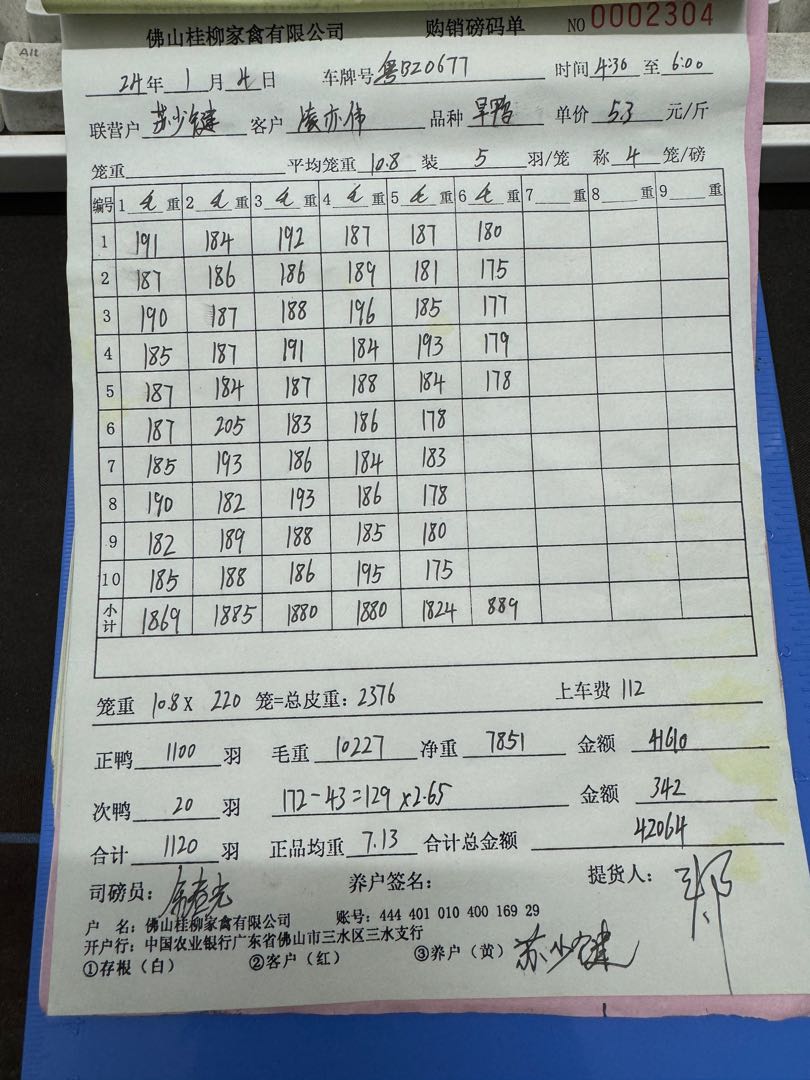 佛山桂柳家禽有限公司 购销磅码单 NO 0002304
24年 1月 4日 车牌号 粤BZ0677 时间 4:30 至 6:00
联营户 苏少键 客户 凌亦伟 品种 旱鸭 单价 5.3 元/斤
笼重 平均笼重 10.8 装 5 羽/笼 称 4 笼/磅
编号 1 毛 重 2 毛 重 3 毛 重 4 毛 重 5 毛 重 6 毛 重 7 重 8 重 9 重
1 191 184 192 187 187 180
2 187 186 186 189 181 175
3 190 187 188 196 185 177
4 185 187 191 184 193 179
5 187 184 187 188 184 178
6 187 205 183 186 178
7 185 193 186 184 183
8 190 182 193 186 178
9 182 189 188 185 180
10 185 188 186 195 175
小计 1869 1885 1880 1880 1824 889
笼重 10.8 X 220 笼=总皮重: 2376 上车费 112
正鸭 1100 羽 毛重 10227 净重 7851 金额 41610
次鸭 20 羽 172-43=129×2.65 金额 342
合计 1120 羽 正品均重 7.13 合计总金额 42064
司磅员: 养户签名: 提货人:
户 名: 佛山桂柳家禽有限公司 账号: 444 401 010 400 169 29
开户行: 中国农业银行广东省佛山市三水区三水支行
①存根(白) ②客户(红) ③养户(黄) 苏少键